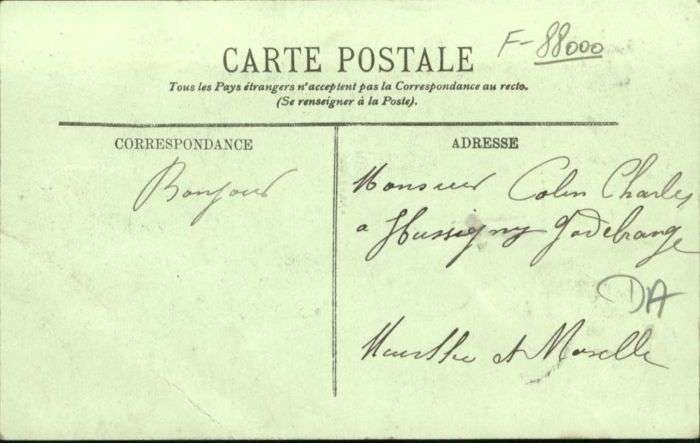 F-88000
CARTE POSTALE
Tous les Pays étrangers n'acceptent pas la Correspondance au recto.
(Se renseigner à la Poste).
CORRESPONDANCE
Bonjour
ADRESSE
Monsieur Colin Charles
a Hussigny Godebrange
DA
Meurthe et Moselle